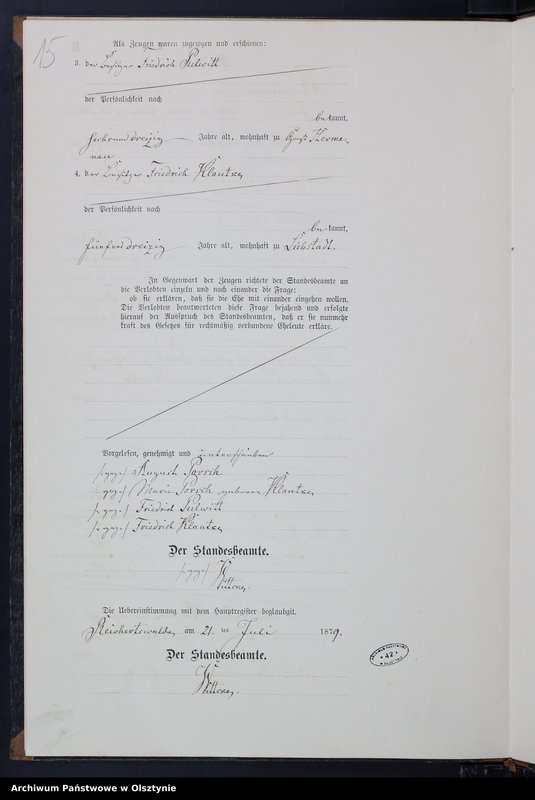 15
Als Zeugen waren zugezogen und erschienen:
3. der Besitzer Friedrich Pulwitt
der Persönlichkeit nach
bekannt,
sechsunddreizig Jahre alt, wohnhaft zu Groß Herme-
nau
4. der Besitzer Friedrich Klautzer
der Persönlichkeit nach
bekannt,
fünfunddreizig Jahre alt, wohnhaft zu Liebstadt.
In Gegenwart der Zeugen richtete der Standesbeamte an
die Verlobten einzeln und nach einander die Frage:
ob sie erklären, daß sie die Ehe mit einander eingehen wollen.
Die Verlobten beantworteten diese Frage bejahend und erfolgte
hierauf der Ausspruch des Standesbeamten, daß er sie nunmehr
kraft des Gesetzes für rechtmäßig verbundene Eheleute erkläre.
Vorgelesen, genehmigt und unterschrieben
/:gez:/ August Porsch
/:gez:/ Marie Porsch geborene Klautzer
/:gez:/ Friedrich Pulwitt
/:gez:/ Friedrich Klautzer
Der Standesbeamte.
/:gez:/
Die Uebereinstimmung mit dem Hauptregister beglaubigt.
Reichertswalde, am 21. ten Juli 1879.
Der Standesbeamte.
ARCHIWUM PAŃSTWOWE
* 42 *
W OLSZTYNIE
Archiwum Państwowe w Olsztynie